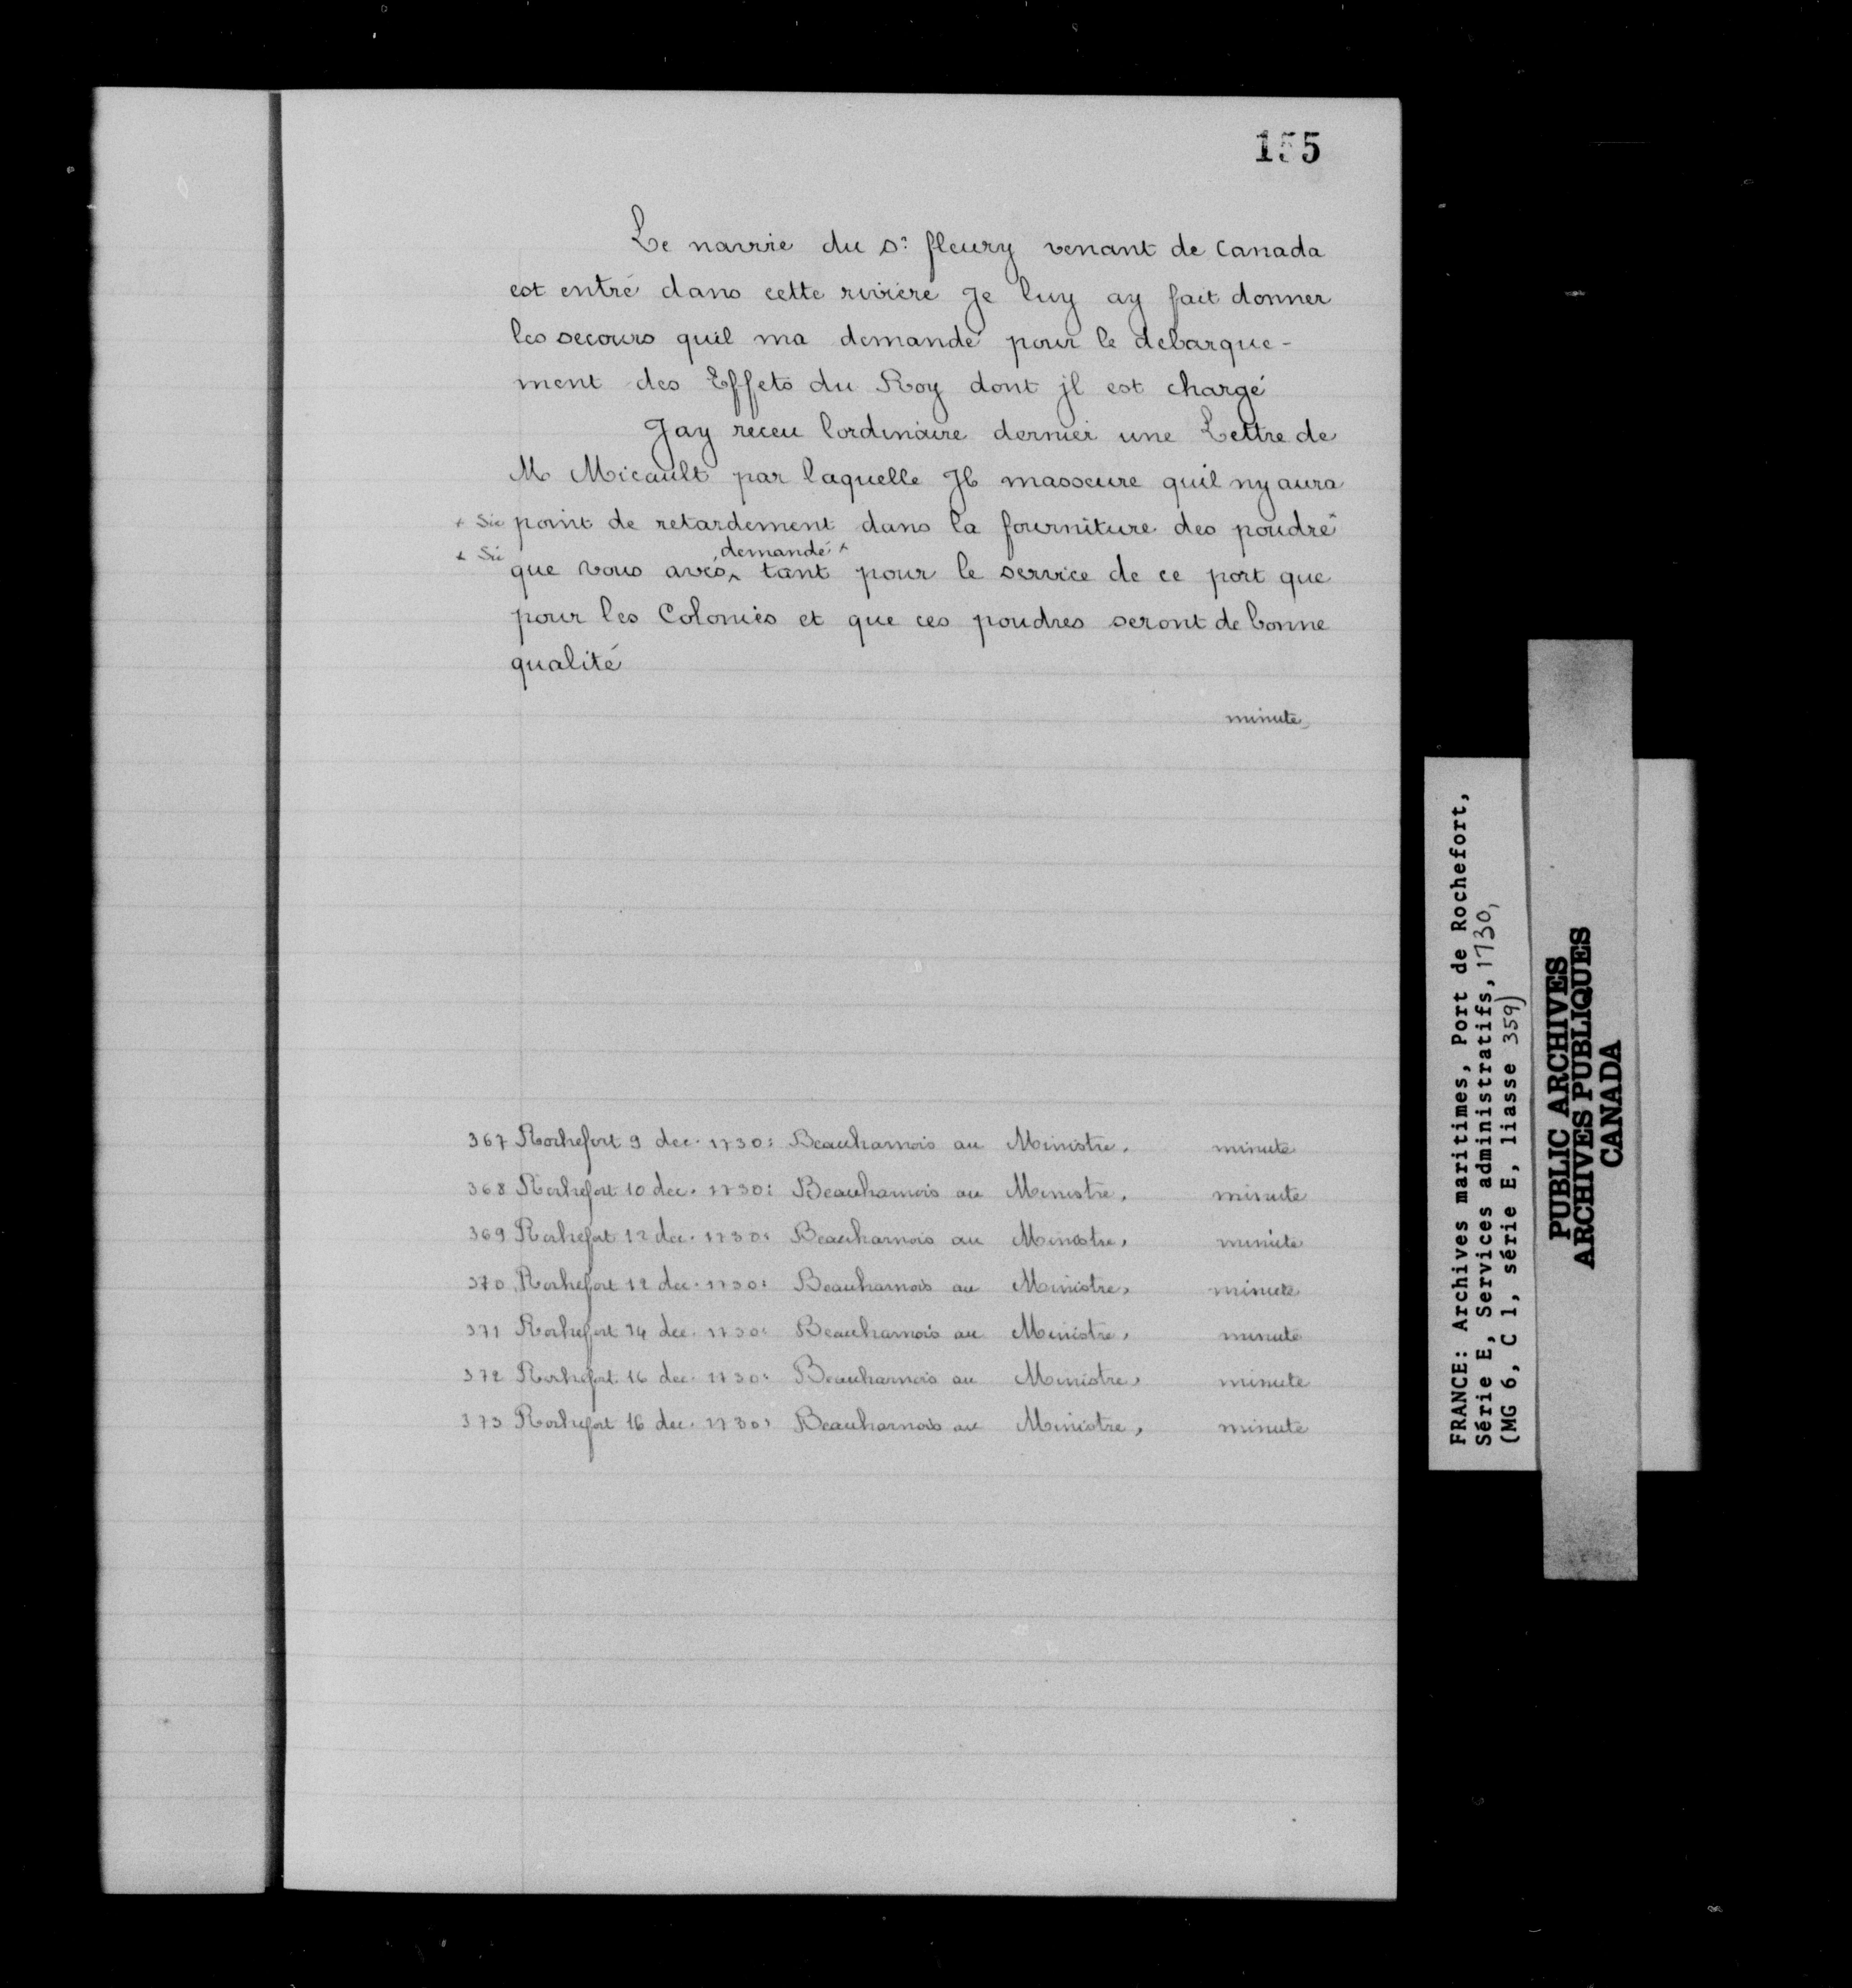 155
Le navrie du s.r fleury venant de Canada
est entré dans cette riviere Je luy ay fait donner
les secours quil ma demandé pour le debarque-
ment des Effets du Roy dont jl est chargé
Jay receu lordinaire dernier une Lettre de
M Micault par laquelle Jl masseure quil ny aura
+ Sic point de retardement dans la fourniture des poudre+
+ Sic que vous avés ^ demandé+ tant pour le service de ce port que
pour les Colonies et que ces poudres seront de bonne
qualité
minute
367 Rochefort 9 dec. 1730: Beauharnois au Ministre, minute
368 Rochefort 10 dec. 1730: Beauharnois au Ministre, minute
369 Rochefort 12 dec. 1730: Beauharnois au Ministre, minute
370 Rochefort 12 dec. 1730: Beauharnois au Ministre, minute
371 Rochefort 14 dec. 1730: Beauharnois au Ministre, minute
372 Rochefort 16 dec. 1730: Beauharnois au Ministre, minute
373 Rochefort 16 dec. 1730: Beauharnois au Ministre, minute
FRANCE: Archives maritimes, Port de Rochefort,
Série E, Services administratifs, 1730,
(MG 6, C 1, série E, liasse 359)
PUBLIC ARCHIVES
ARCHIVES PUBLIQUES
CANADA